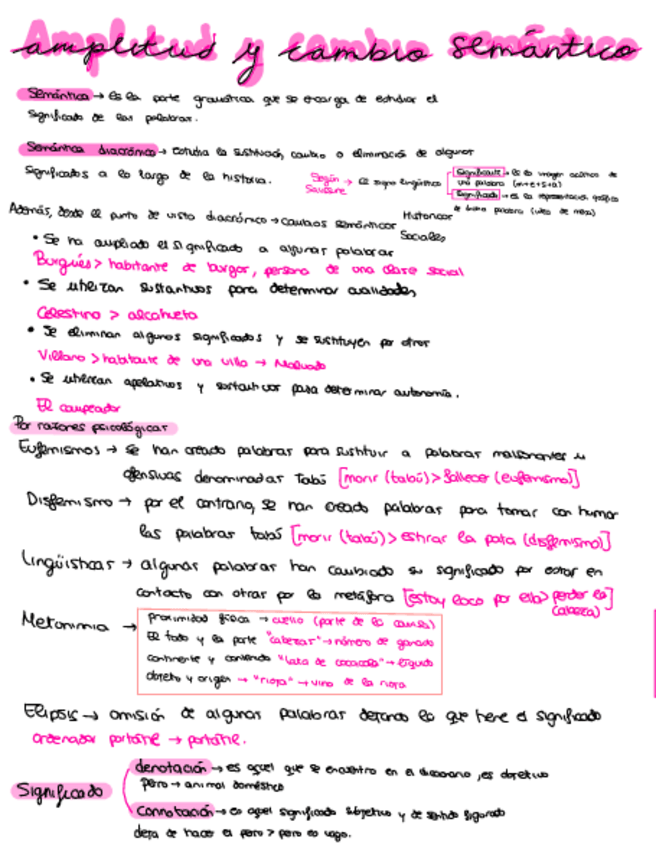 amplitud y cambio semántico
Semántica → es la parte gramática que se encarga de estudiar el
significado de las palabras.
Semántica diacrónica → estudia la sustitución, cambio o eliminación de algunos
significados a lo largo de la historia.
Según Saussure → El signo lingüístico
Significante → Es la imagen acústica de
una palabra (m+e+s+a)
Significado → es la representación gráfica
de dicha palabra (idea de mesa)
Además, desde el punto de vista diacrónico → cambios semánticos
Históricos
Sociales
• Se ha ampliado el significado a algunas palabras
Burgués > habitante de burgos, persona de una clase social
• Se utilizan sustantivos para determinar cualidades
Celestino > alcahueta
• Se eliminan algunos significados y se sustituyen por otros
Villano > habitante de una villa → Malvado
• Se utilizan apelativos y sustantivos para determinar autonomía.
El campeador
Por razones psicológicas
Eufemismos → se han creado palabras para sustituir a palabras malsonantes u
ofensivas denominadas tabú [morir (tabú) > fallecer (eufemismo)]
Disfemismo → por el contrario, se han creado palabras para tomar con humor
las palabras tabú [morir (tabú) > estirar la pata (disfemismo)]
Lingüísticas → algunas palabras han cambiado su significado por estar en
contacto con otras por la metáfora [estoy loco por ella > perder la
cabeza]
Metonimia →
proximidad física → cuello (parte de la camisa)
El todo y la parte "cabezas" → número de ganado
continente y contenido "lata de cocacola" → líquido
objeto y origen → "rioja" → vino de la rioja
Elipsis → omisión de algunas palabras dejando la que tiene el significado
ordenador portátil → portátil.
Significado
denotación → es aquel que se encuentra en el diccionario, es objetivo
perro → animal doméstico
Connotación → es aquel significado subjetivo y de sentido figurado
deja de hacer el perro > perro es vago.